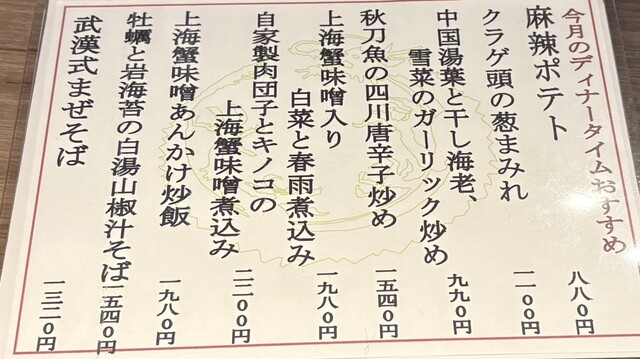 今月のディナータイムおすすめ
麻辣ポテト 八八〇円
クラゲ頭の葱まみれ 一一〇〇円
中国湯葉と干し海老、
雪菜のガーリック炒め 九九〇円
秋刀魚の四川唐辛子炒め 一五四〇円
上海蟹味噌入り
白菜と春雨煮込み 一九八〇円
自家製肉団子とキノコの
上海蟹味噌煮込み 二二〇〇円
上海蟹味噌あんかけ炒飯 一九八〇円
牡蠣と岩海苔の白湯山椒汁そば 一五四〇円
武漢式まぜそば 一三二〇円